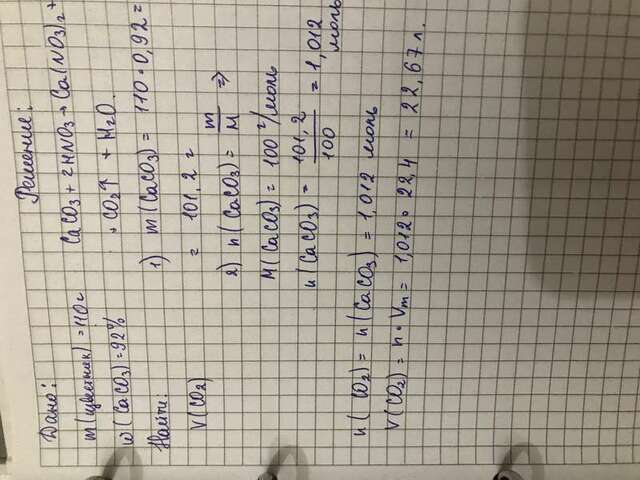 Дано:
m(известняк) = 110 г
w(CaCO3) = 92%
Найти:
V(CO2)
Решение:
CaCO3 + 2HNO3 → Ca(NO3)2 +
+ CO2↑ + H2O.
1) m(CaCO3) = 110 · 0,92 =
= 101,2 г
2) n(CaCO3) = m/M ⇒
M(CaCO3) = 100 г/моль
n(CaCO3) = 101,2/100 = 1,012 моль
n(CO2) = n(CaCO3) = 1,012 моль
V(CO2) = n · Vm = 1,012 · 22,4 = 22,67 л.